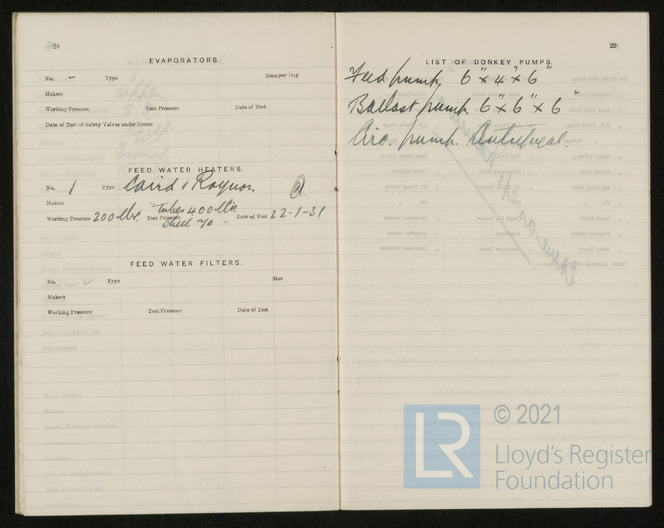 28
EVAPORATORS.
No. - Type Tons per Day
Makers
Working Pressure Test Pressure Date of Test
Date of Test of Safety Valves under Steam
FEED WATER HEATERS.
No. 1 Type Caird & Raynor.
Makers
Working Pressure 200 lbs. Test Pressure Tubes 400 lbs Date of Test 22-1-31
Shell 70 "
FEED WATER FILTERS.
No. Type Size
Makers
Working Pressure Test Pressure Date of Test
29
LIST OF DONKEY PUMPS.
Feed pump, 6" x 4" x 6"
Ballast pump 6" x 6" x 6"
Circ. pump. Centrifugal.
LR
© 2021
Lloyd's Register
Foundation